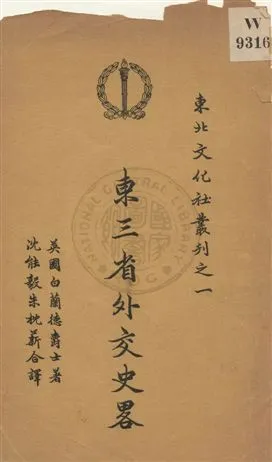 W
9316
東北文化社叢刊之一
東三省外交史畧
英國白蘭德爵士著
沈能毅朱枕薪合譯
NATIONAL CENTRAL LIBRARY